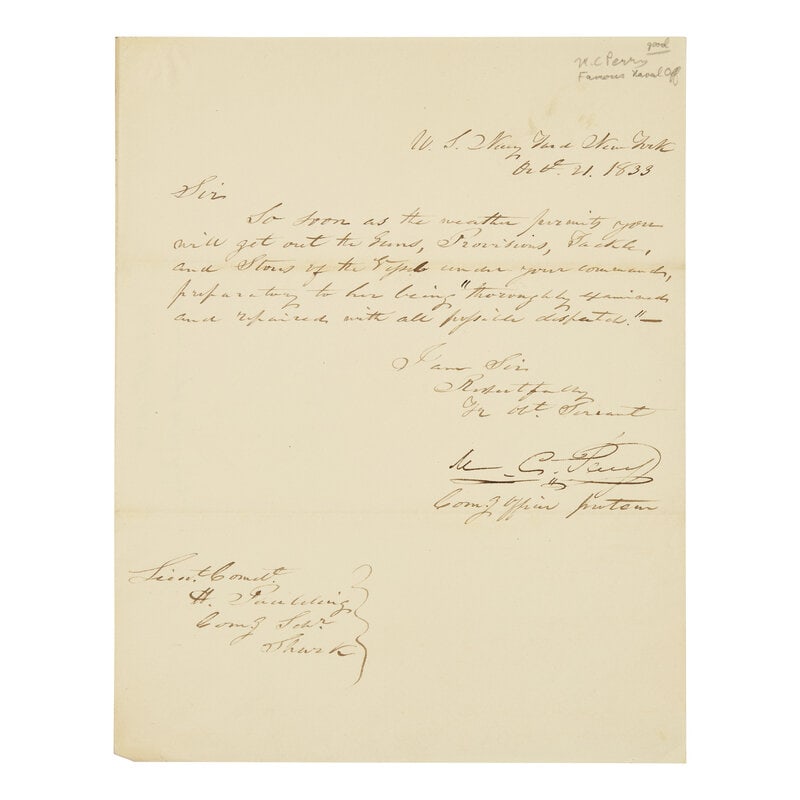 good
M. C Perry
Famous Naval Off
U. S. Navy Yard New York
Oct. 21. 1833
Sir
So soon as the weather permits you
will get out the Guns, Provisions, Tackle,
and Stores of the Vessel under your command,
preparatory to her being "thoroughly examined
and repaired with all possible despatch." —
I am Sir
Respectfully
Yr Obt. Servant
M. C. Perry
Comg Officer protem
Lieut. Comdt.
H. Paulding
Comg Schr
Shark